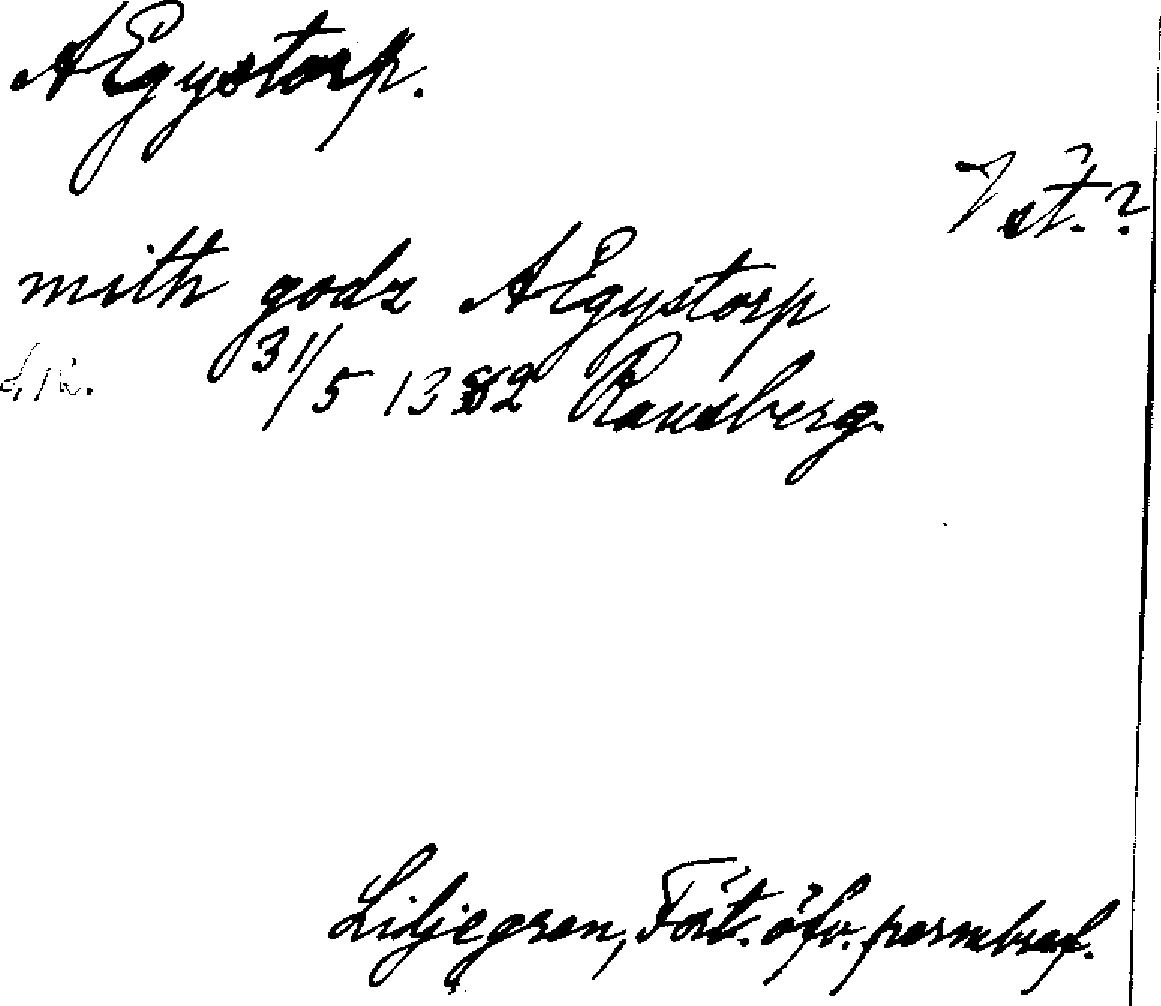 AEgystorp.
Vöt.?
mith godz AEgystorp
31/5 1382 Ransberg.
Liljegren, Fört. öfv. permbref.